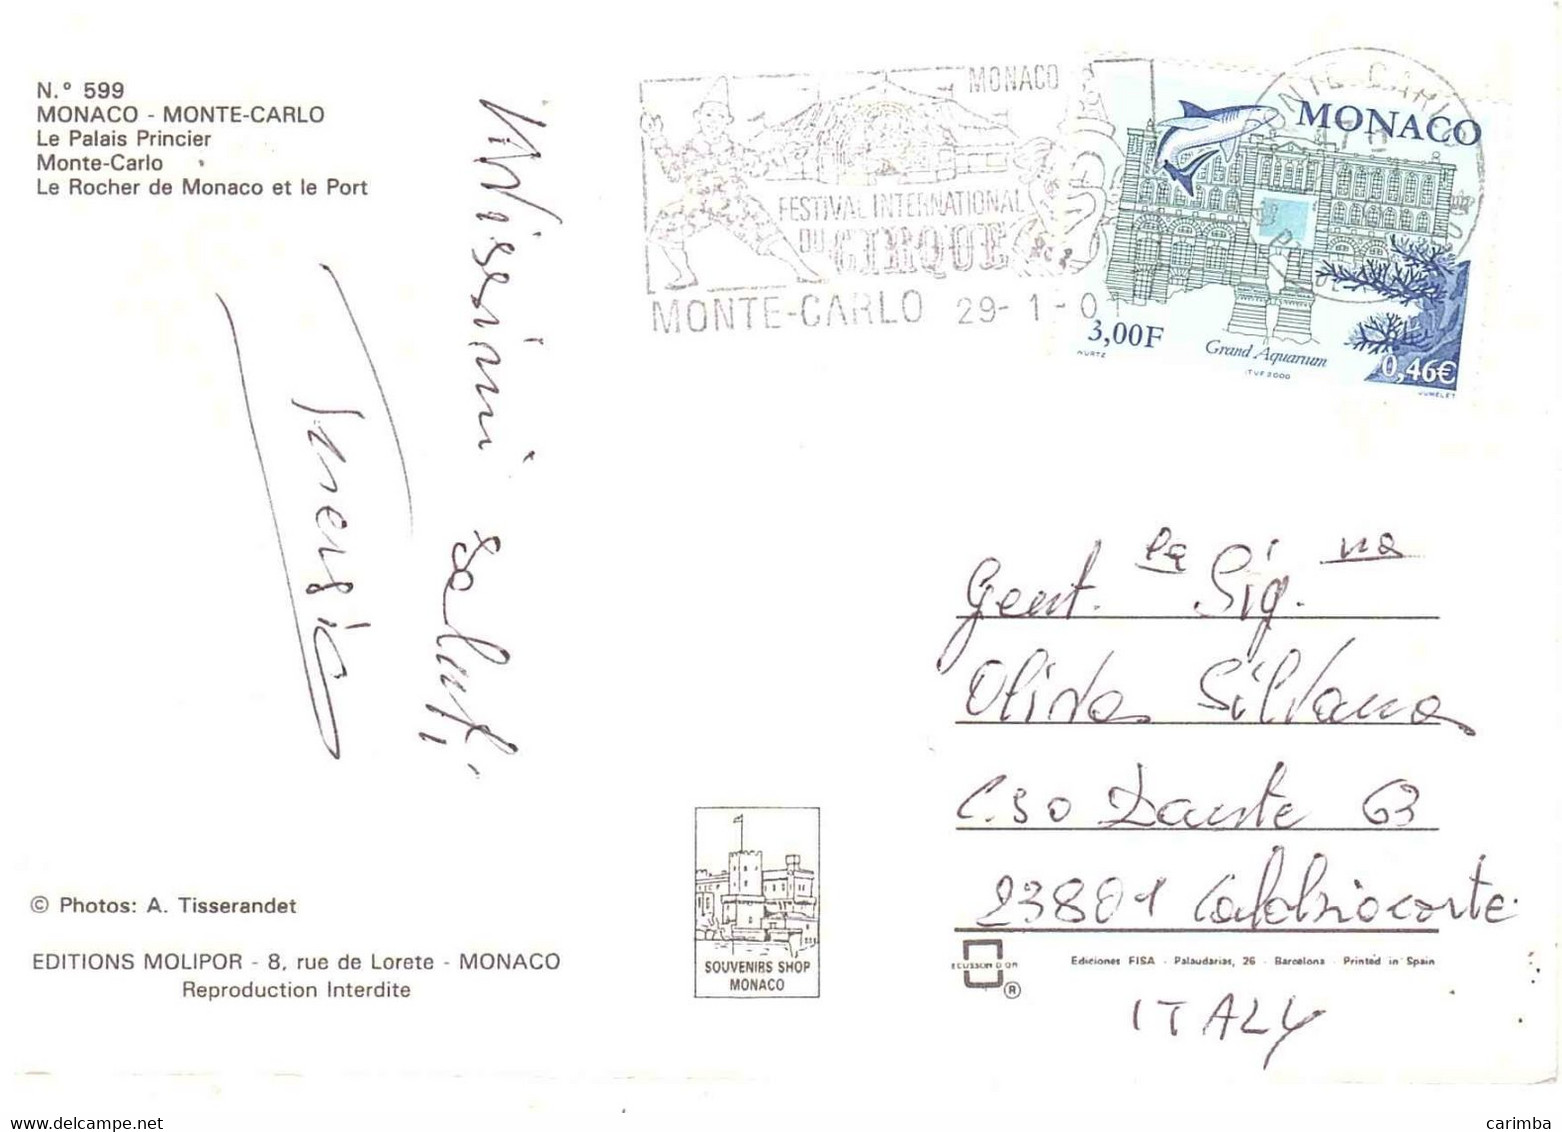 N.º 599
MONACO - MONTE-CARLO
Le Palais Princier
Monte-Carlo
Le Rocher de Monaco et le Port
Vivissimi
saluti
© Photos: A. Tisserandet
EDITIONS MOLIPOR - 8, rue de Lorete - MONACO
Reproduction Interdite
MONACO
FESTIVAL INTERNATIONAL
DU CIRQUE
MONTE-CARLO 29-1-01
MONACO
3,00F
Grand Aquarium
ITVF 2000
0,46€
SOUVENIRS SHOP
MONACO
Gent.la Sig.na
Oliva Silvana
C.so Dante 63
23801 Calolziocorte
ECUSSON D'OR
®
Ediciones FISA - Palaudarias, 26 - Barcelona - Printed in Spain
ITALY
www.delcampe.net
carimba